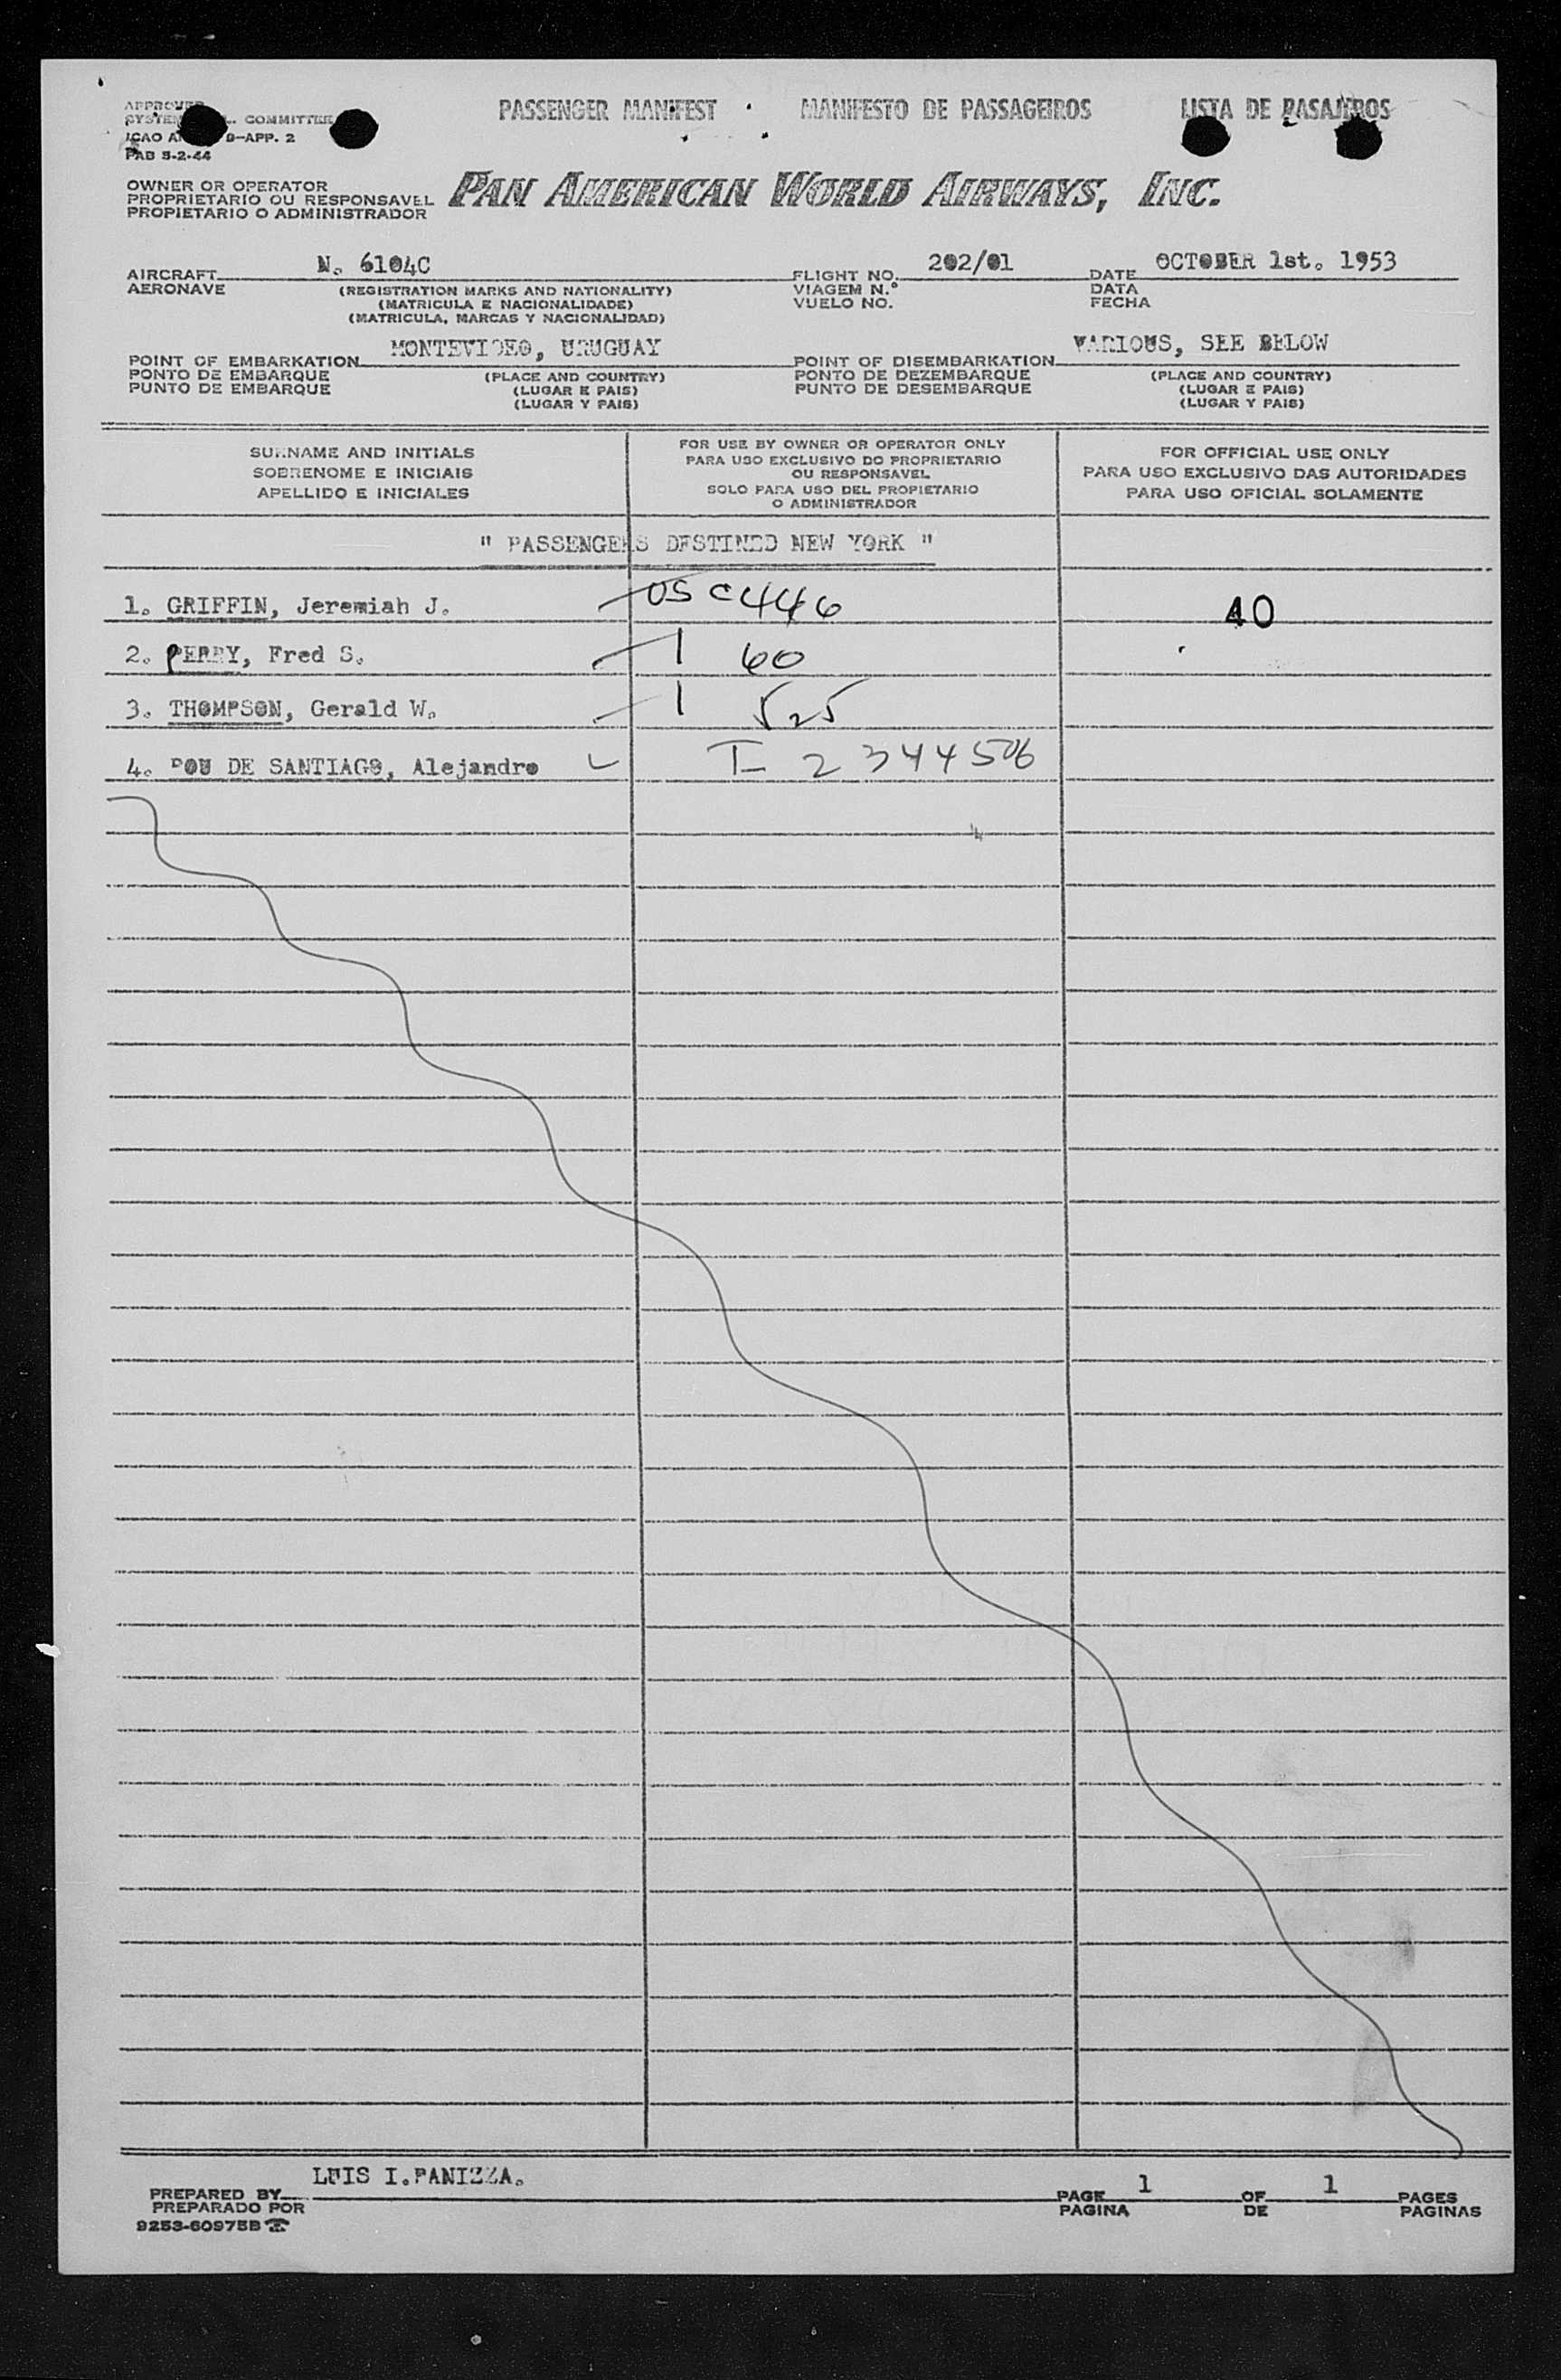 PASSENGER MANIFEST MANIFESTO DE PASSAGEIROS LISTA DE PASAJEROS
APPROVED
COMMITTEE
ICAO 9-APP. 2
PAB 5-2-44
OWNER OR OPERATOR
PROPRIETARIO OU RESPONSAVEL
PROPIETARIO O ADMINISTRADOR
PAN AMERICAN WORLD AIRWAYS, INC.
AIRCRAFT N. 6104C FLIGHT NO. 202/01 DATE OCTOBER 1st. 1953
AERONAVE (REGISTRATION MARKS AND NATIONALITY) VIAGEM N.º DATA
(MATRICULA E NACIONALIDADE) VUELO NO. FECHA
(MATRICULA, MARCAS Y NACIONALIDAD)
POINT OF EMBARKATION MONTEVIDEO, URUGUAY POINT OF DISEMBARKATION VARIOUS, SEE BELOW
PONTO DE EMBARQUE (PLACE AND COUNTRY) PONTO DE DEZEMBARQUE (PLACE AND COUNTRY)
PUNTO DE EMBARQUE (LUGAR E PAIS) PUNTO DE DESEMBARQUE (LUGAR E PAIS)
(LUGAR Y PAIS) (LUGAR Y PAIS)
SURNAME AND INITIALS
SOBRENOME E INICIAIS
APELLIDO E INICIALES
FOR USE BY OWNER OR OPERATOR ONLY
PARA USO EXCLUSIVO DO PROPRIETARIO
OU RESPONSAVEL
SOLO PARA USO DEL PROPIETARIO
O ADMINISTRADOR
FOR OFFICIAL USE ONLY
PARA USO EXCLUSIVO DAS AUTORIDADES
PARA USO OFICIAL SOLAMENTE
" PASSENGERS DESTINED NEW YORK "
1. GRIFFIN, Jeremiah J. USC446 40
2. PERRY, Fred S. 1 60
3. THOMPSON, Gerald W. 1 525
4. POU DE SANTIAGO, Alejandro I-2344506
PREPARED BY LUIS I. PANIZZA. PAGE 1 OF 1 PAGES
PREPARADO POR PAGINA DE PAGINAS
9253-60975B